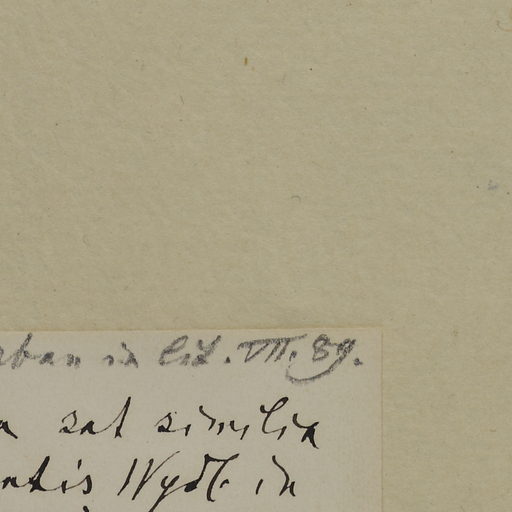 rban in lit. VII. 89.
a sat similia
ntis Wydl. in